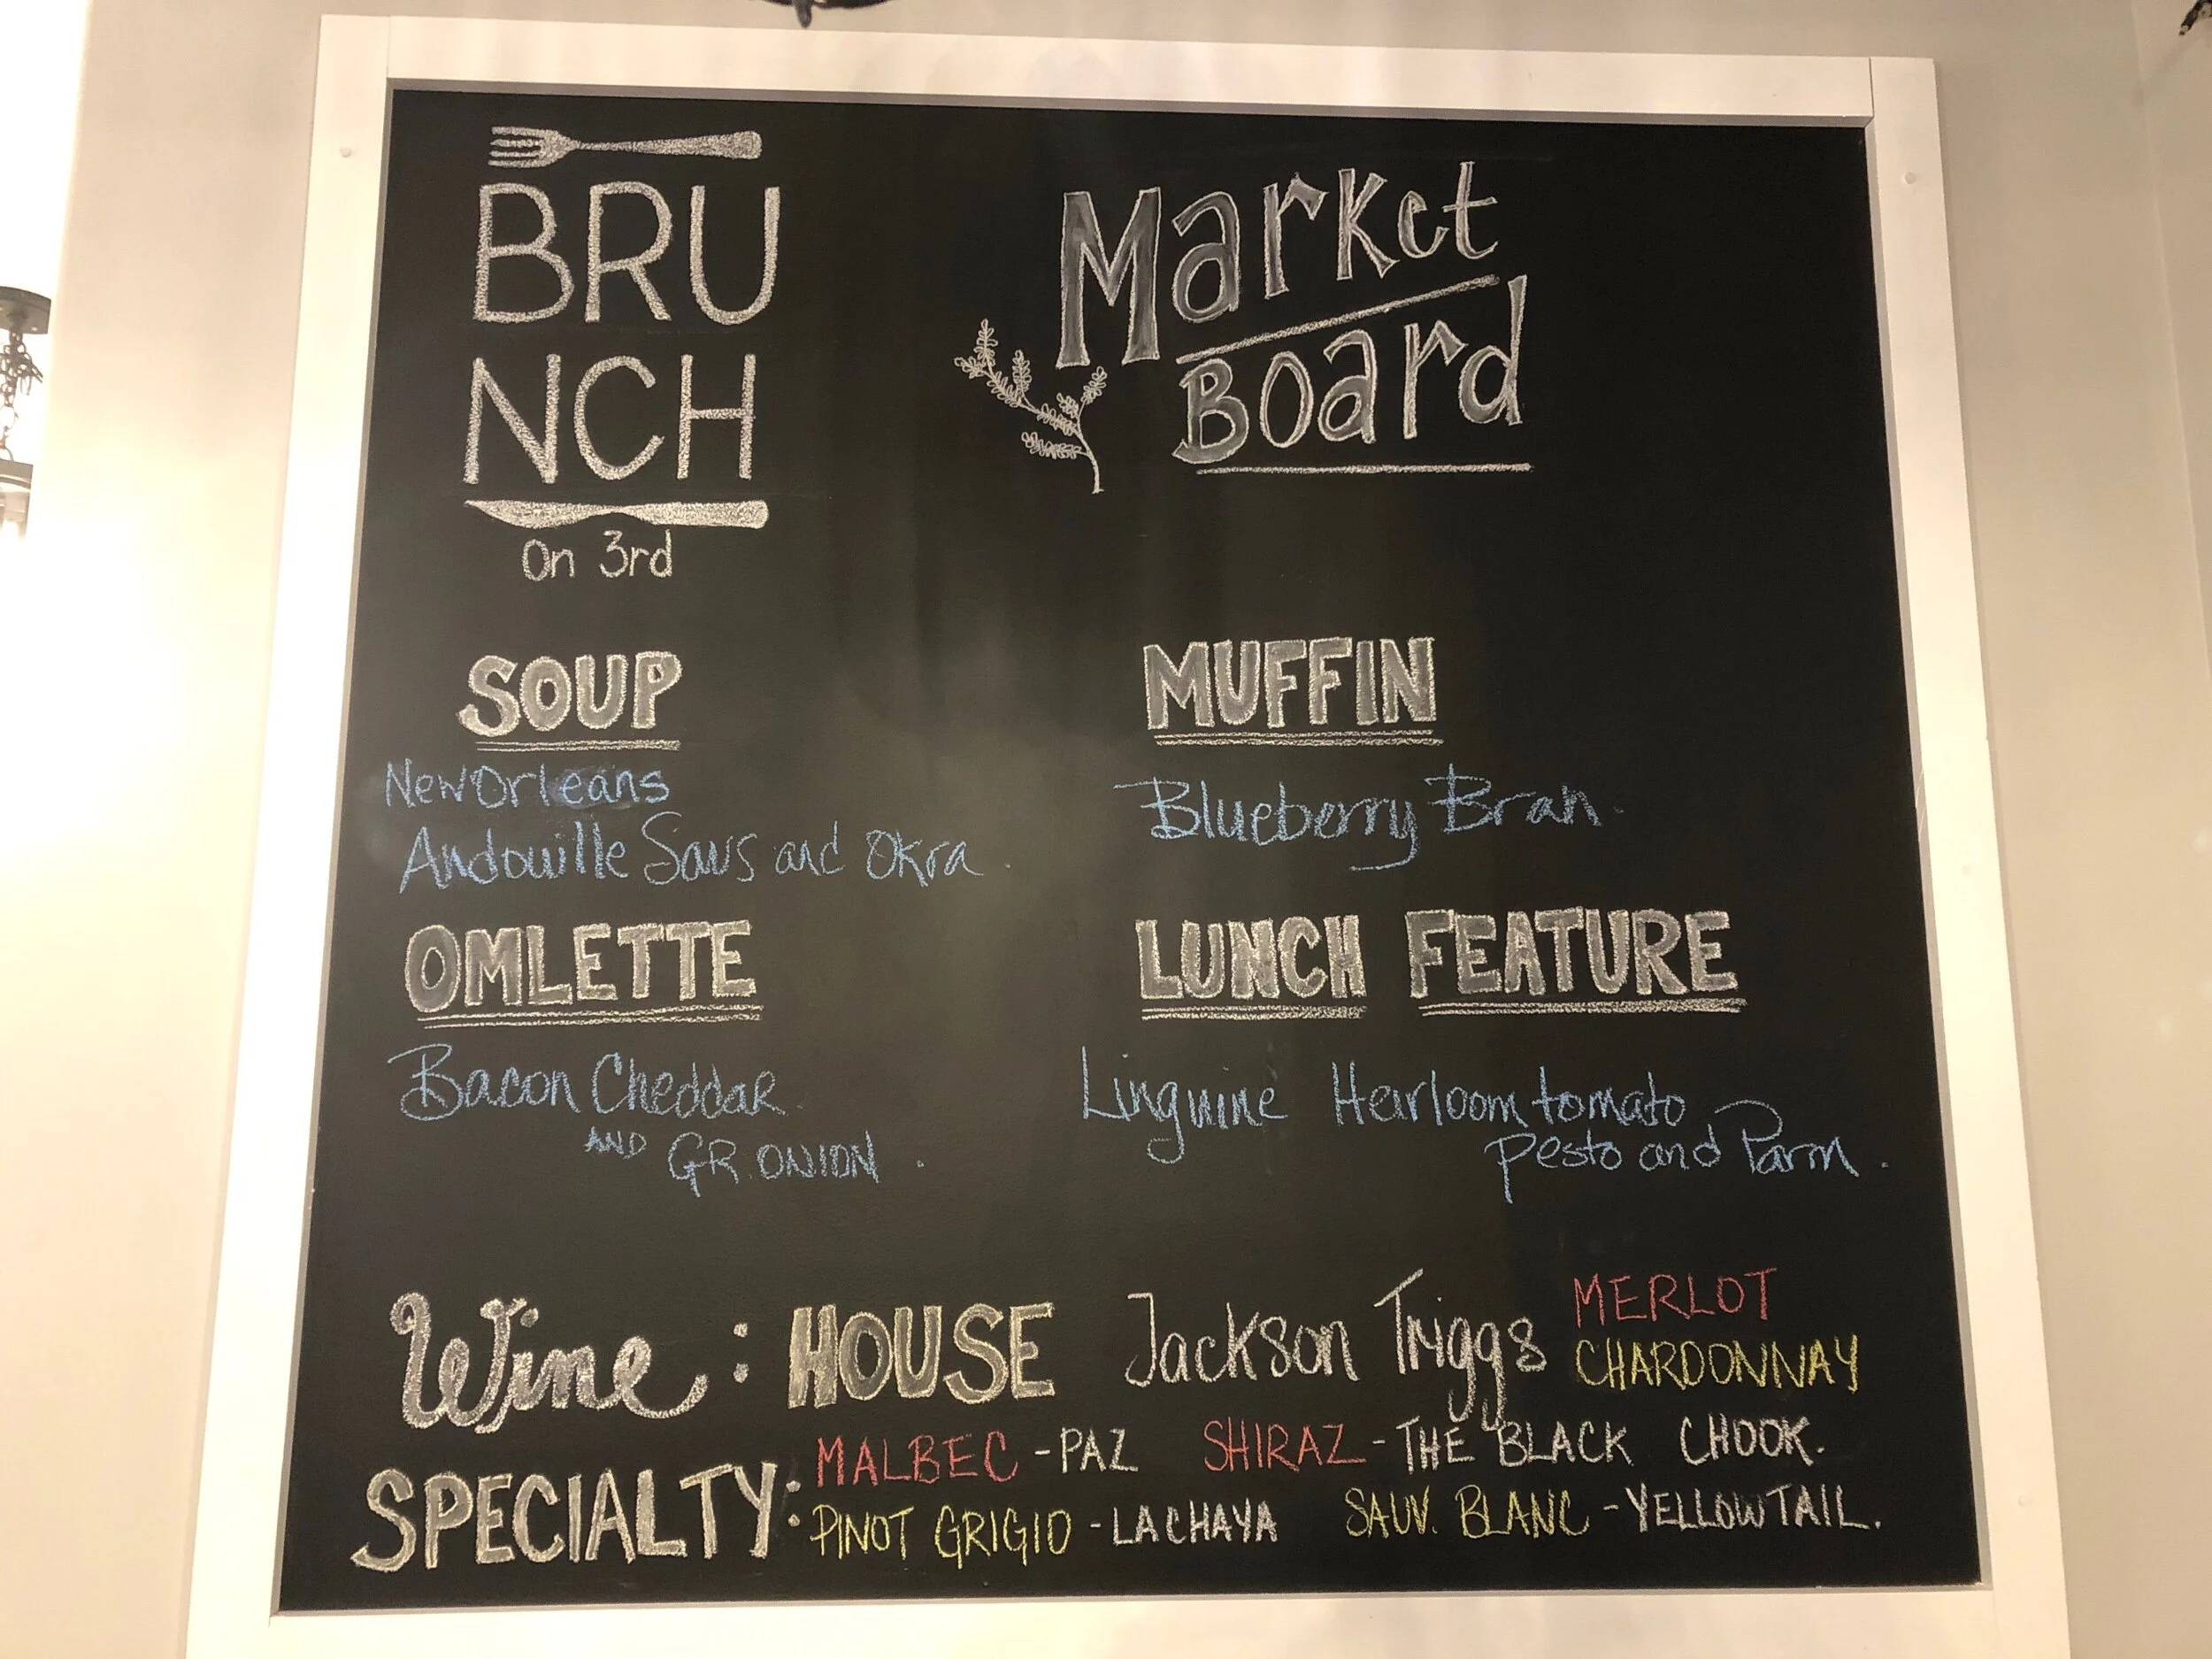 BRU
NCH
On 3rd
Market
Board
SOUP
New Orleans
Andouille Saus and Okra
MUFFIN
Blueberry Bran
OMLETTE
Bacon Cheddar
AND GR. ONION
LUNCH FEATURE
Linguine Heirloom tomato
pesto and Parm.
Wine: HOUSE Jackson Triggs MERLOT
CHARDONNAY
SPECIALTY: MALBEC - PAZ SHIRAZ - THE BLACK CHOOK.
PINOT GRIGIO - LA CHAYA SAUV. BLANC - YELLOWTAIL.